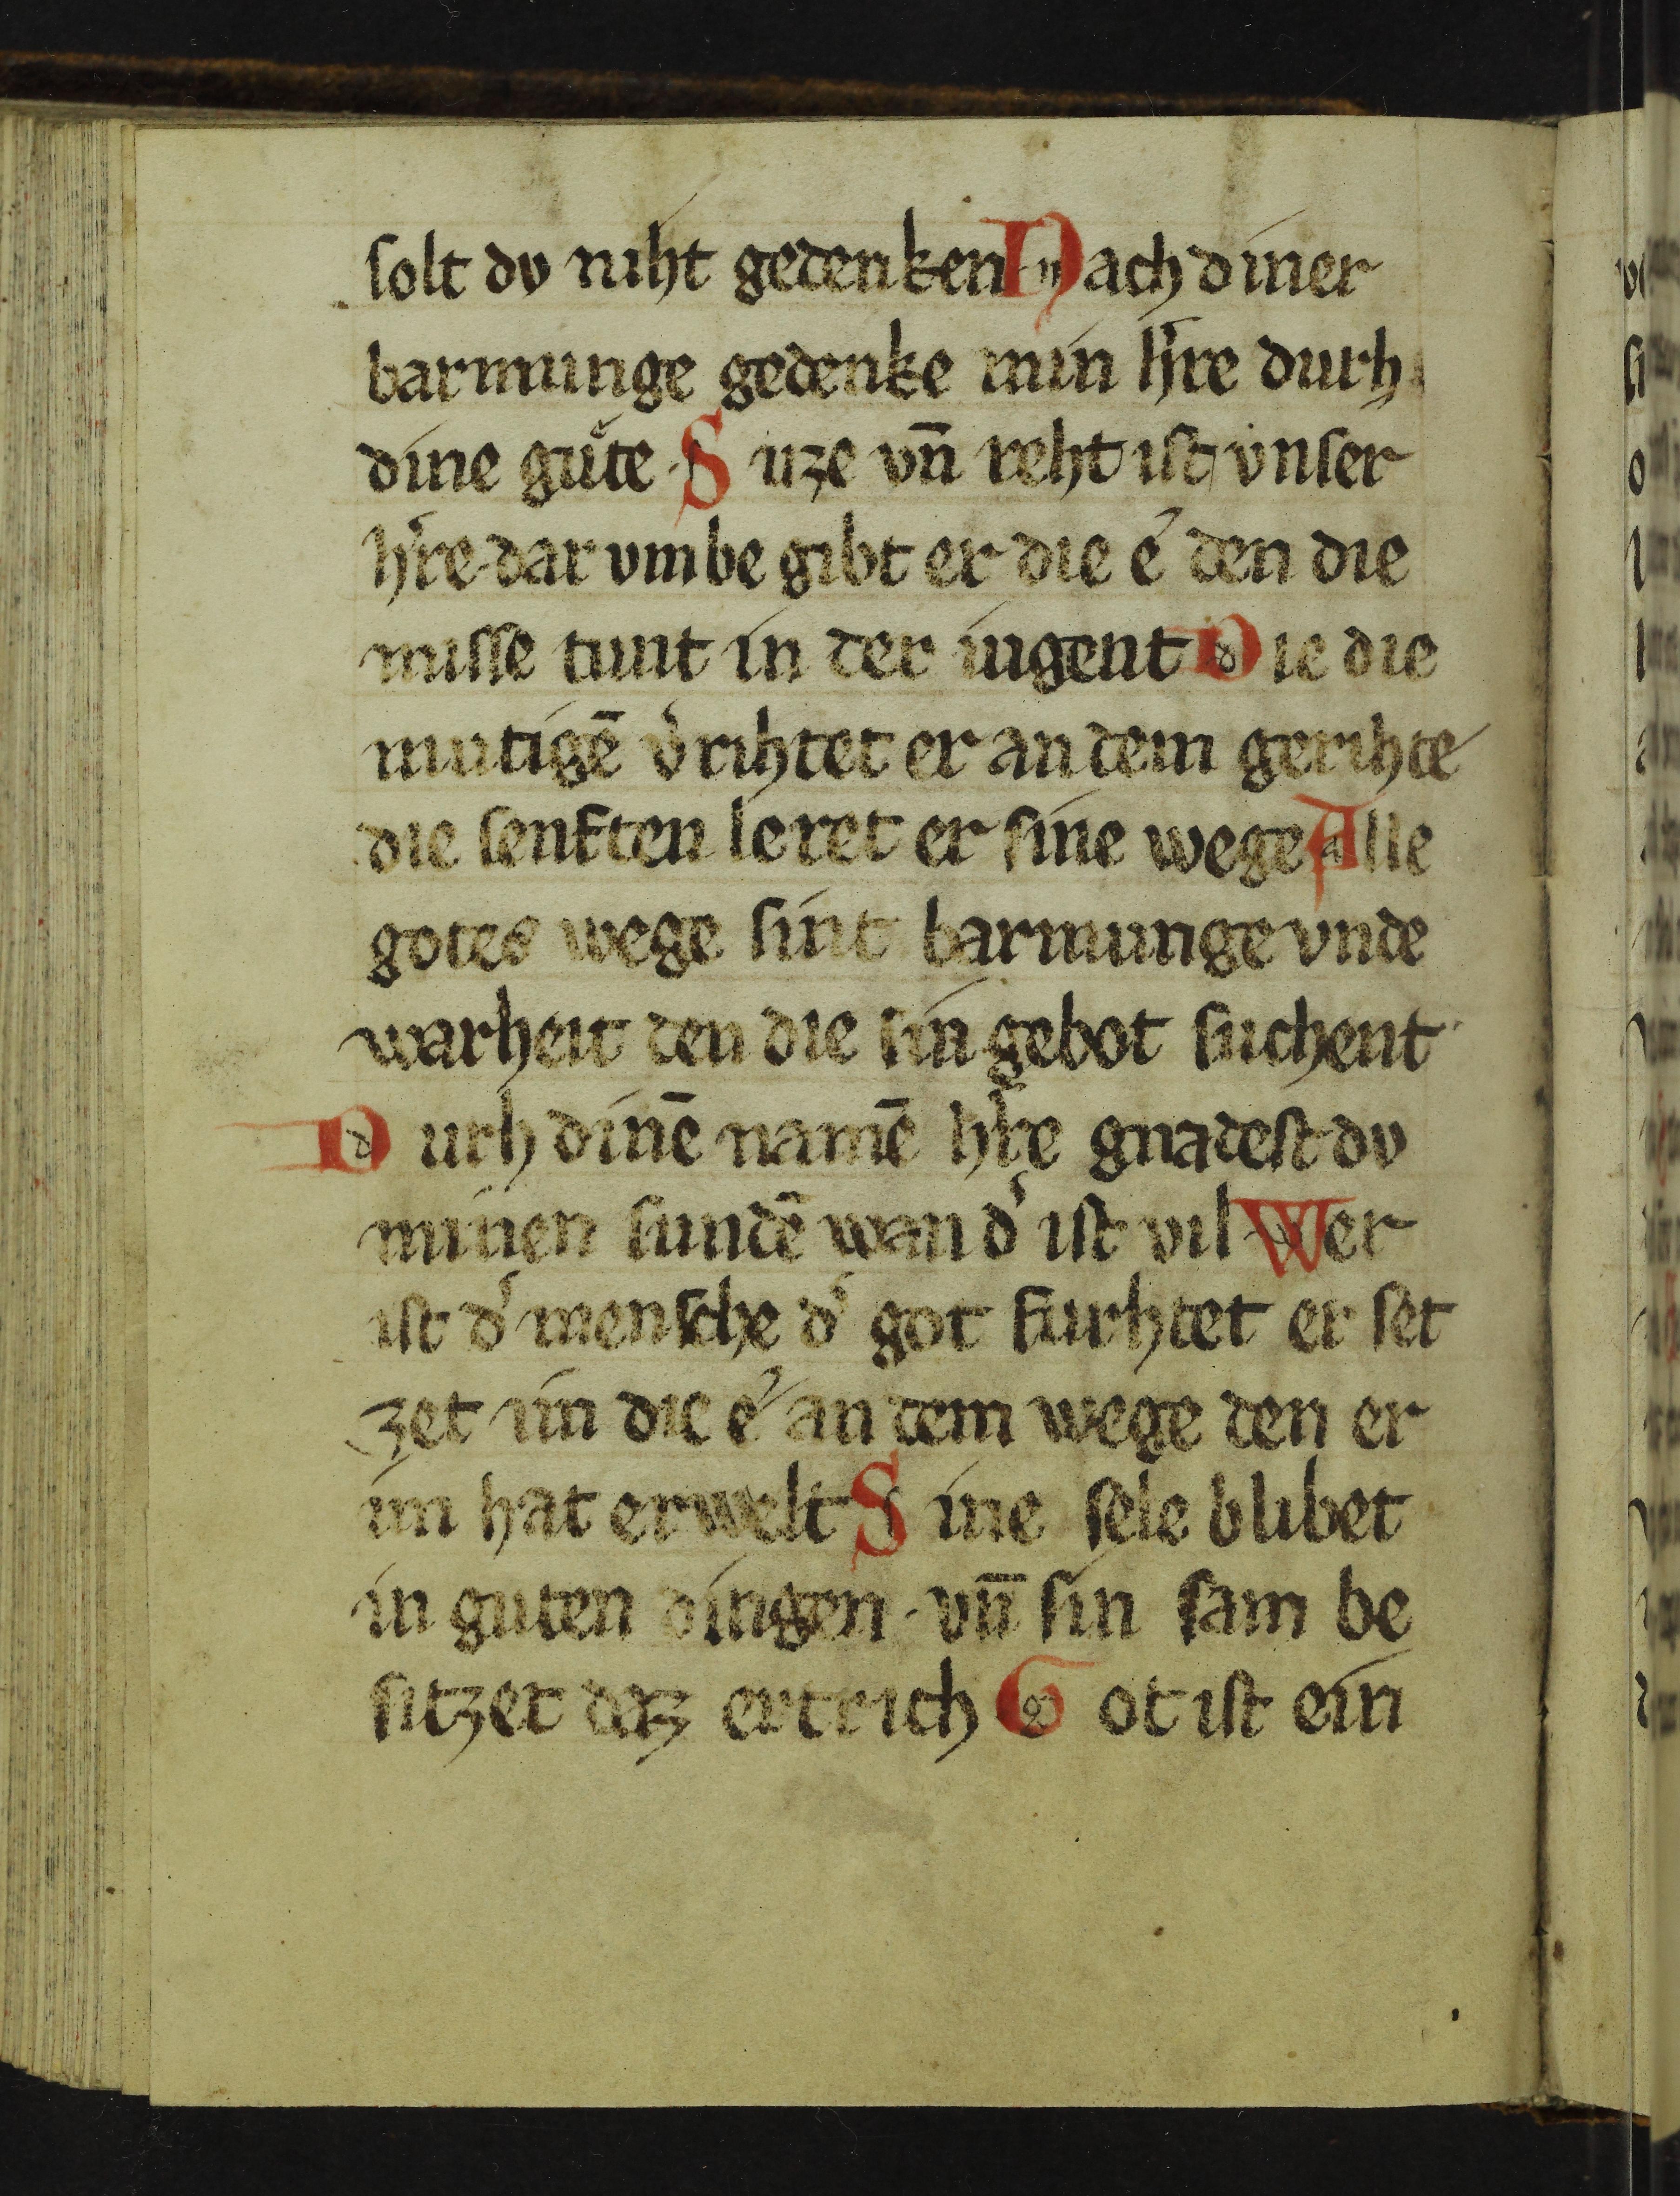 solt dv niht gedenken Nach diner
barmunge gedenke min h̓re durh
dine gůte · Suze vn̄ reht ist vnser
h̓re · dar vmbe gibt er die é den die
misse tunt in der iugent Die die
mutigē v̓rihtet er an dem gerihte
die senften leret er sine wege Alle
gotes wege sint barmunge vnde
warheit den die sin gebot suchent
Durh dinē namē h̓re gnadest dv
minen sundē wan d̓ ist vil · Wer
ist d̓ mensche d̓ got furhtet er set
zet im die é an dem wege den er
im hat erwelt Sine sele blibet
in guten dingen · vn̄ sin sam be
sitzet dez ertrich Got ist ein